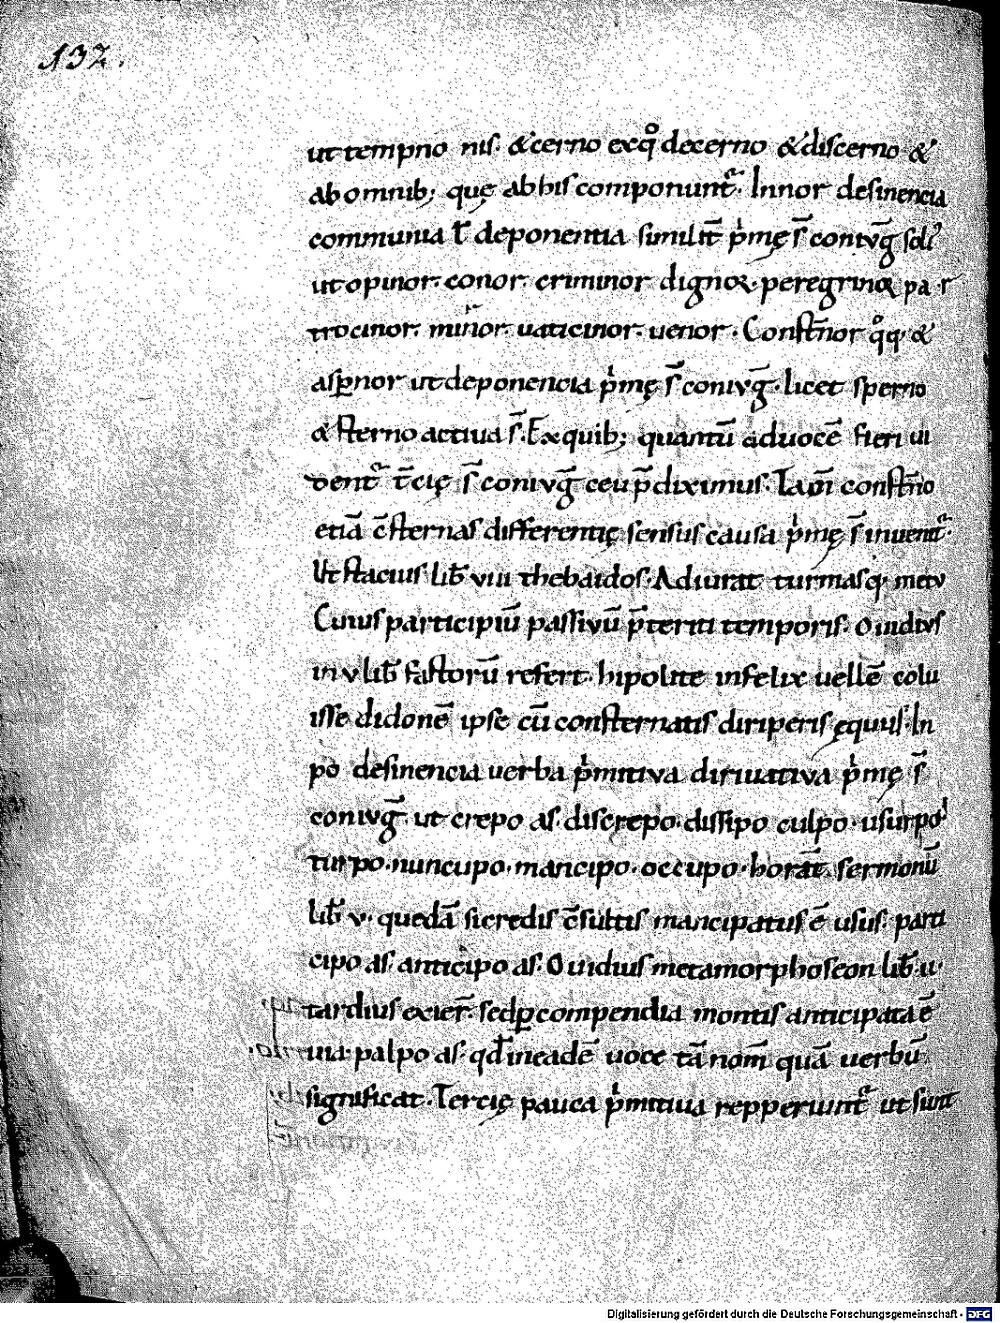 132.
ut tempno nis. & cerno ex qͦ decerno & discerno &
ab omnib; quę ab his componunt᷑. In nor desinencia
communia ł deponentia similit̄ p̍mę s̄ coniuḡ sol̄
ut opinor. conor. criminor. dignoꝝ. peregrinoꝝ pa r
trocinor. minor. uaticinor. uenor. Consťnor qͦq; &
asꝑnor ut deponencia p̍mę s̄ coniuḡ. licet sperno
& sterno actiua s̄. Ex quib; quantū ad uocē fieri ui
dent᷑ t̄cię s̄ coniuḡ ceu p̄diximus. Tam̄ consťno
etiā c̄sternas differentię sensus causa p̍mę s̄ inuent᷑.
Ut stacius lib̄ viii thebaidos. Adiurat turmasq; metu
Cuius participiū passiuū p̄teriti temporis. Ouidius
in v lib̄ fastorū refert. hipolite infelix uellē colu
isse didonē ipse cū consternatis diriperis ęquis. In
po desinencia uerba p̍mitiva diriuativa p̍mę s̄
coniuḡ. ut crepo as. discrepo. dissipo culpo. usurpo
turpo. nuncupo. mancipo. occupo. horat̄. sermonū
lib̄ v. quedā si credis c̄sultis mancipatus ē usus. parti
cipo as. anticipo as. Ouidius metamorphoseon lib̄ ii.
tardius exier̄. sed ꝑ compendia montis anticipata ē
uia. palpo as. qđ in eadē uoce tā nom̄ quā uerbū
significat. Tercię pauca p̍mitiua repperiunt᷑ ut sunt
Digitalisierung gefördert durch die Deutsche Forschungsgemeinschaft - DFG